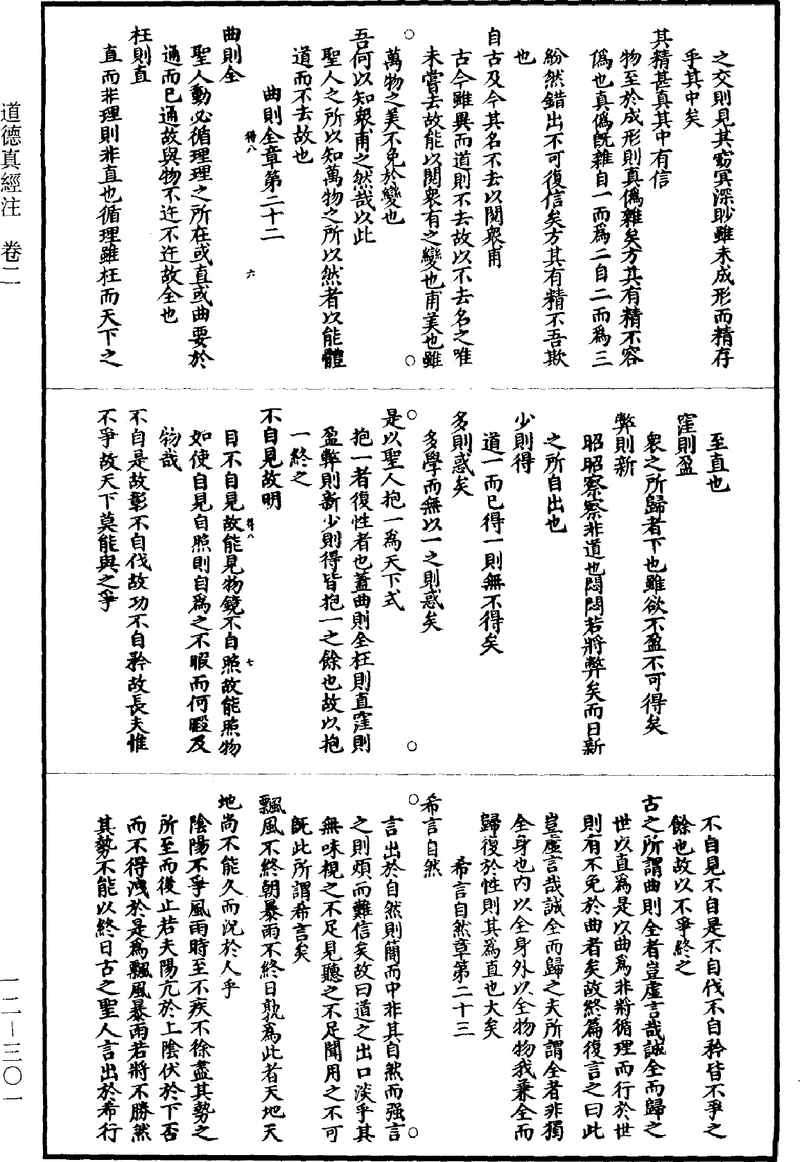 之交則見其窈冥深眇雖未成形而精存
乎其中矣
其精甚真其中有信
物至於成形則真僞雜矣方其有精不容
僞也真僞既雜自一而爲二自二而爲三
紛然錯出不可復信矣方其有精不吾欺
也
自古及今其名不去以閱衆甫
古今雖異而道則不去故以不去名之唯
未嘗去故能以閱衆有之變也甫美也雖
萬物之美不免於變也
吾何以知衆甫之然哉以此
聖人之所以知萬物之所以然者以能體
道而不去故也
曲則全章第二十二
得八 六
曲則全
聖人動必循理理之所在或直或曲要於
通而已通故與物不迕不迕故全也
枉則直
直而非理則非直也循理雖枉而天下之
至直也
窪則盈
衆之所歸者下也雖欲不盈不可得矣
弊則新
昭昭察察非道也悶悶若將弊矣而日新
之所自出也
少則得
道一而已得一則無不得矣
多則惑矣
多學而無以一之則惑矣
是以聖人抱一爲天下式
抱一者復性者也蓋曲則全枉則直窪則
盈弊則新少則得皆抱一之餘也故以抱
一終之
不自見故明
目不自見故能見物鏡不自照故能照物
得八 七
如使自見自照則自爲之不暇而何暇及
物哉
不自是故彰不自伐故功不自矜故長夫惟
不爭故天下莫能與之爭
不自見不自是不自伐不自矜皆不爭之
餘也故以不爭終之
古之所謂曲則全者豈虛言哉誠全而歸之
世以直爲是以曲爲非將循理而行於世
則有不免於曲者矣故終篇復言之曰此
豈虛言哉誠全而歸之夫所謂全者非獨
全身也内以全身外以全物物我兼全而
歸復於性則其爲直也大矣
希言自然章第二十三
希言自然
言出於自然則簡而中非其自然而强言
之則煩而難信矣故曰道之出口淡乎其
無味視之不足見聽之不足聞用之不可
既此所謂希言矣
飄風不終朝暴雨不終日孰爲此者天地天
地尚不能久而況於人乎
陰陽不爭風雨時至不疾不徐盡其勢之
所至而後止若夫陽亢於上陰伏於下否
而不得洩於是爲飄風暴雨若將不勝然
其勢不能以終日古之聖人言出於希行
道德真經注 卷二
一二—三〇一